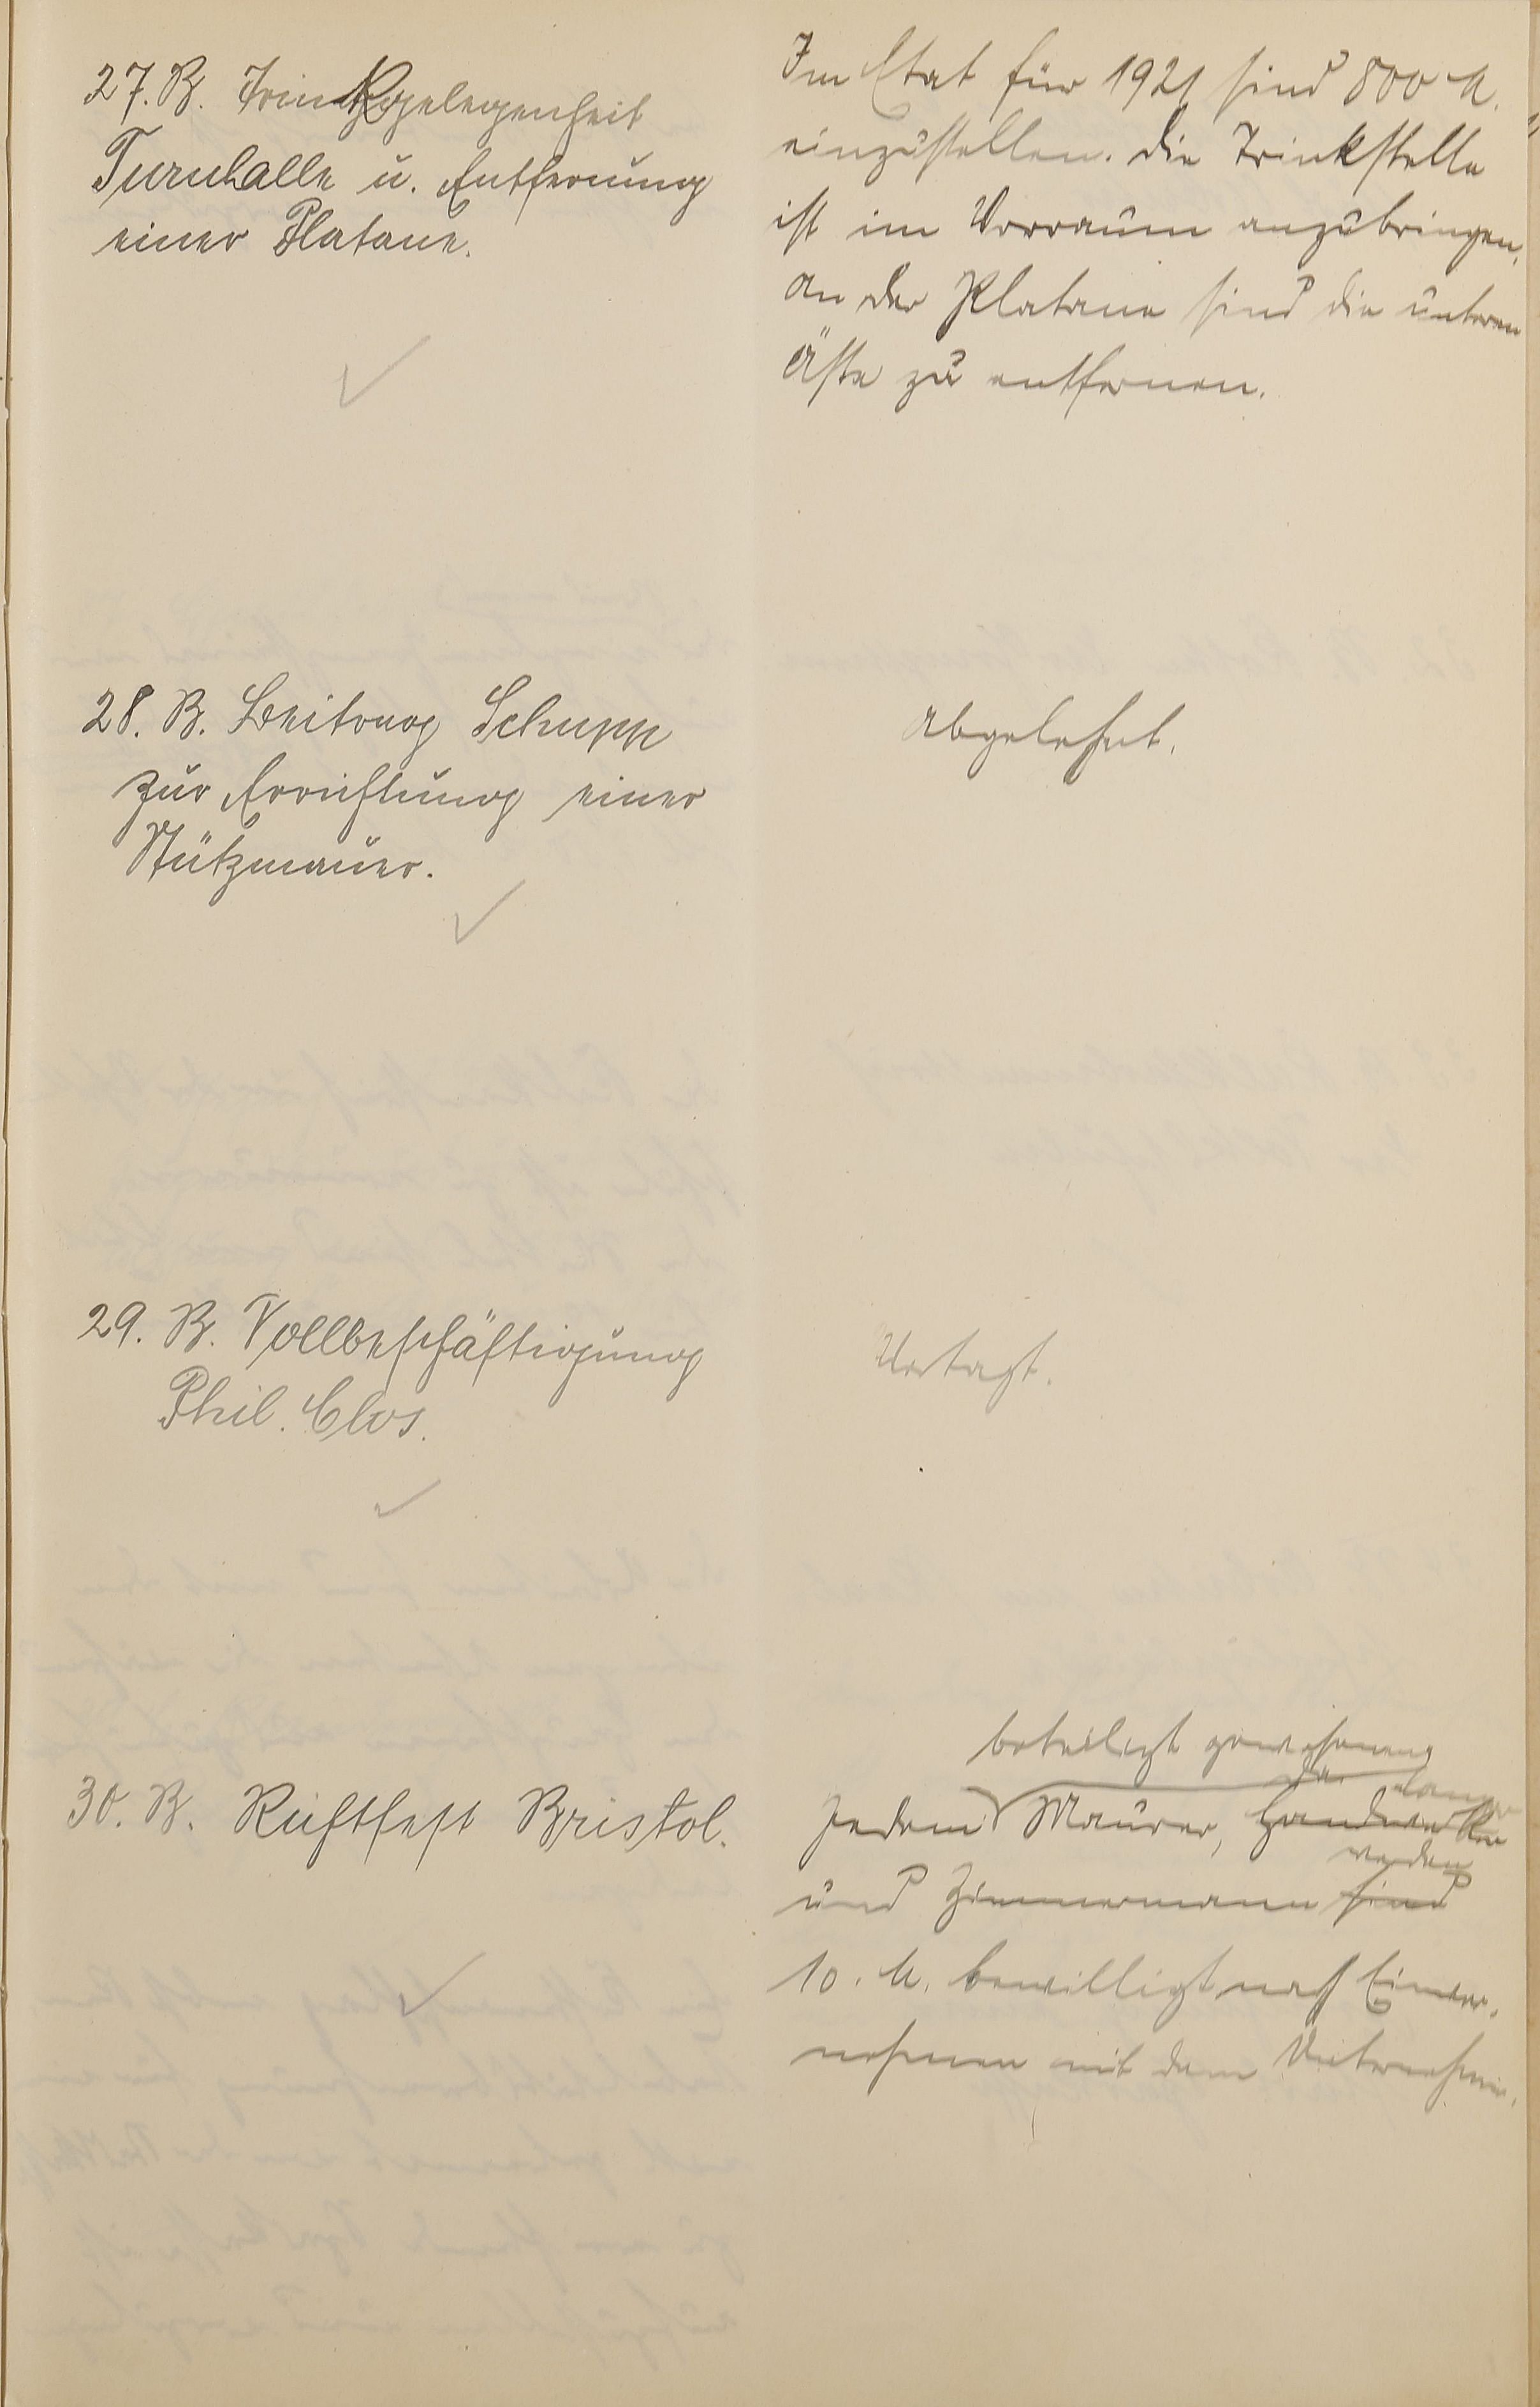 27. B. Trinkgelegenheit
Turnhalle u. Entfernung
einer Platane.
Im Etat für 1921 sind 800 M.
einzustellen. Die Trinkstelle
ist im Vorraum anzubringen,
an der Platane sind die unteren
Äste zu entfernen.
28. B. Beitrag Schupp
zur Errichtung einer
Stützmauer.
Abgelehnt.
29. B. Vollbeschäftigung
Phil. Clos.
Vertagt.
30. B. Richtfest Bristol.
beteiligt gewesenen
Jedem Maurer, Handwerker
werden
und Zimmermann sind
10. M. bewilligt nach Einver-
nehmen mit dem Unternehmer.